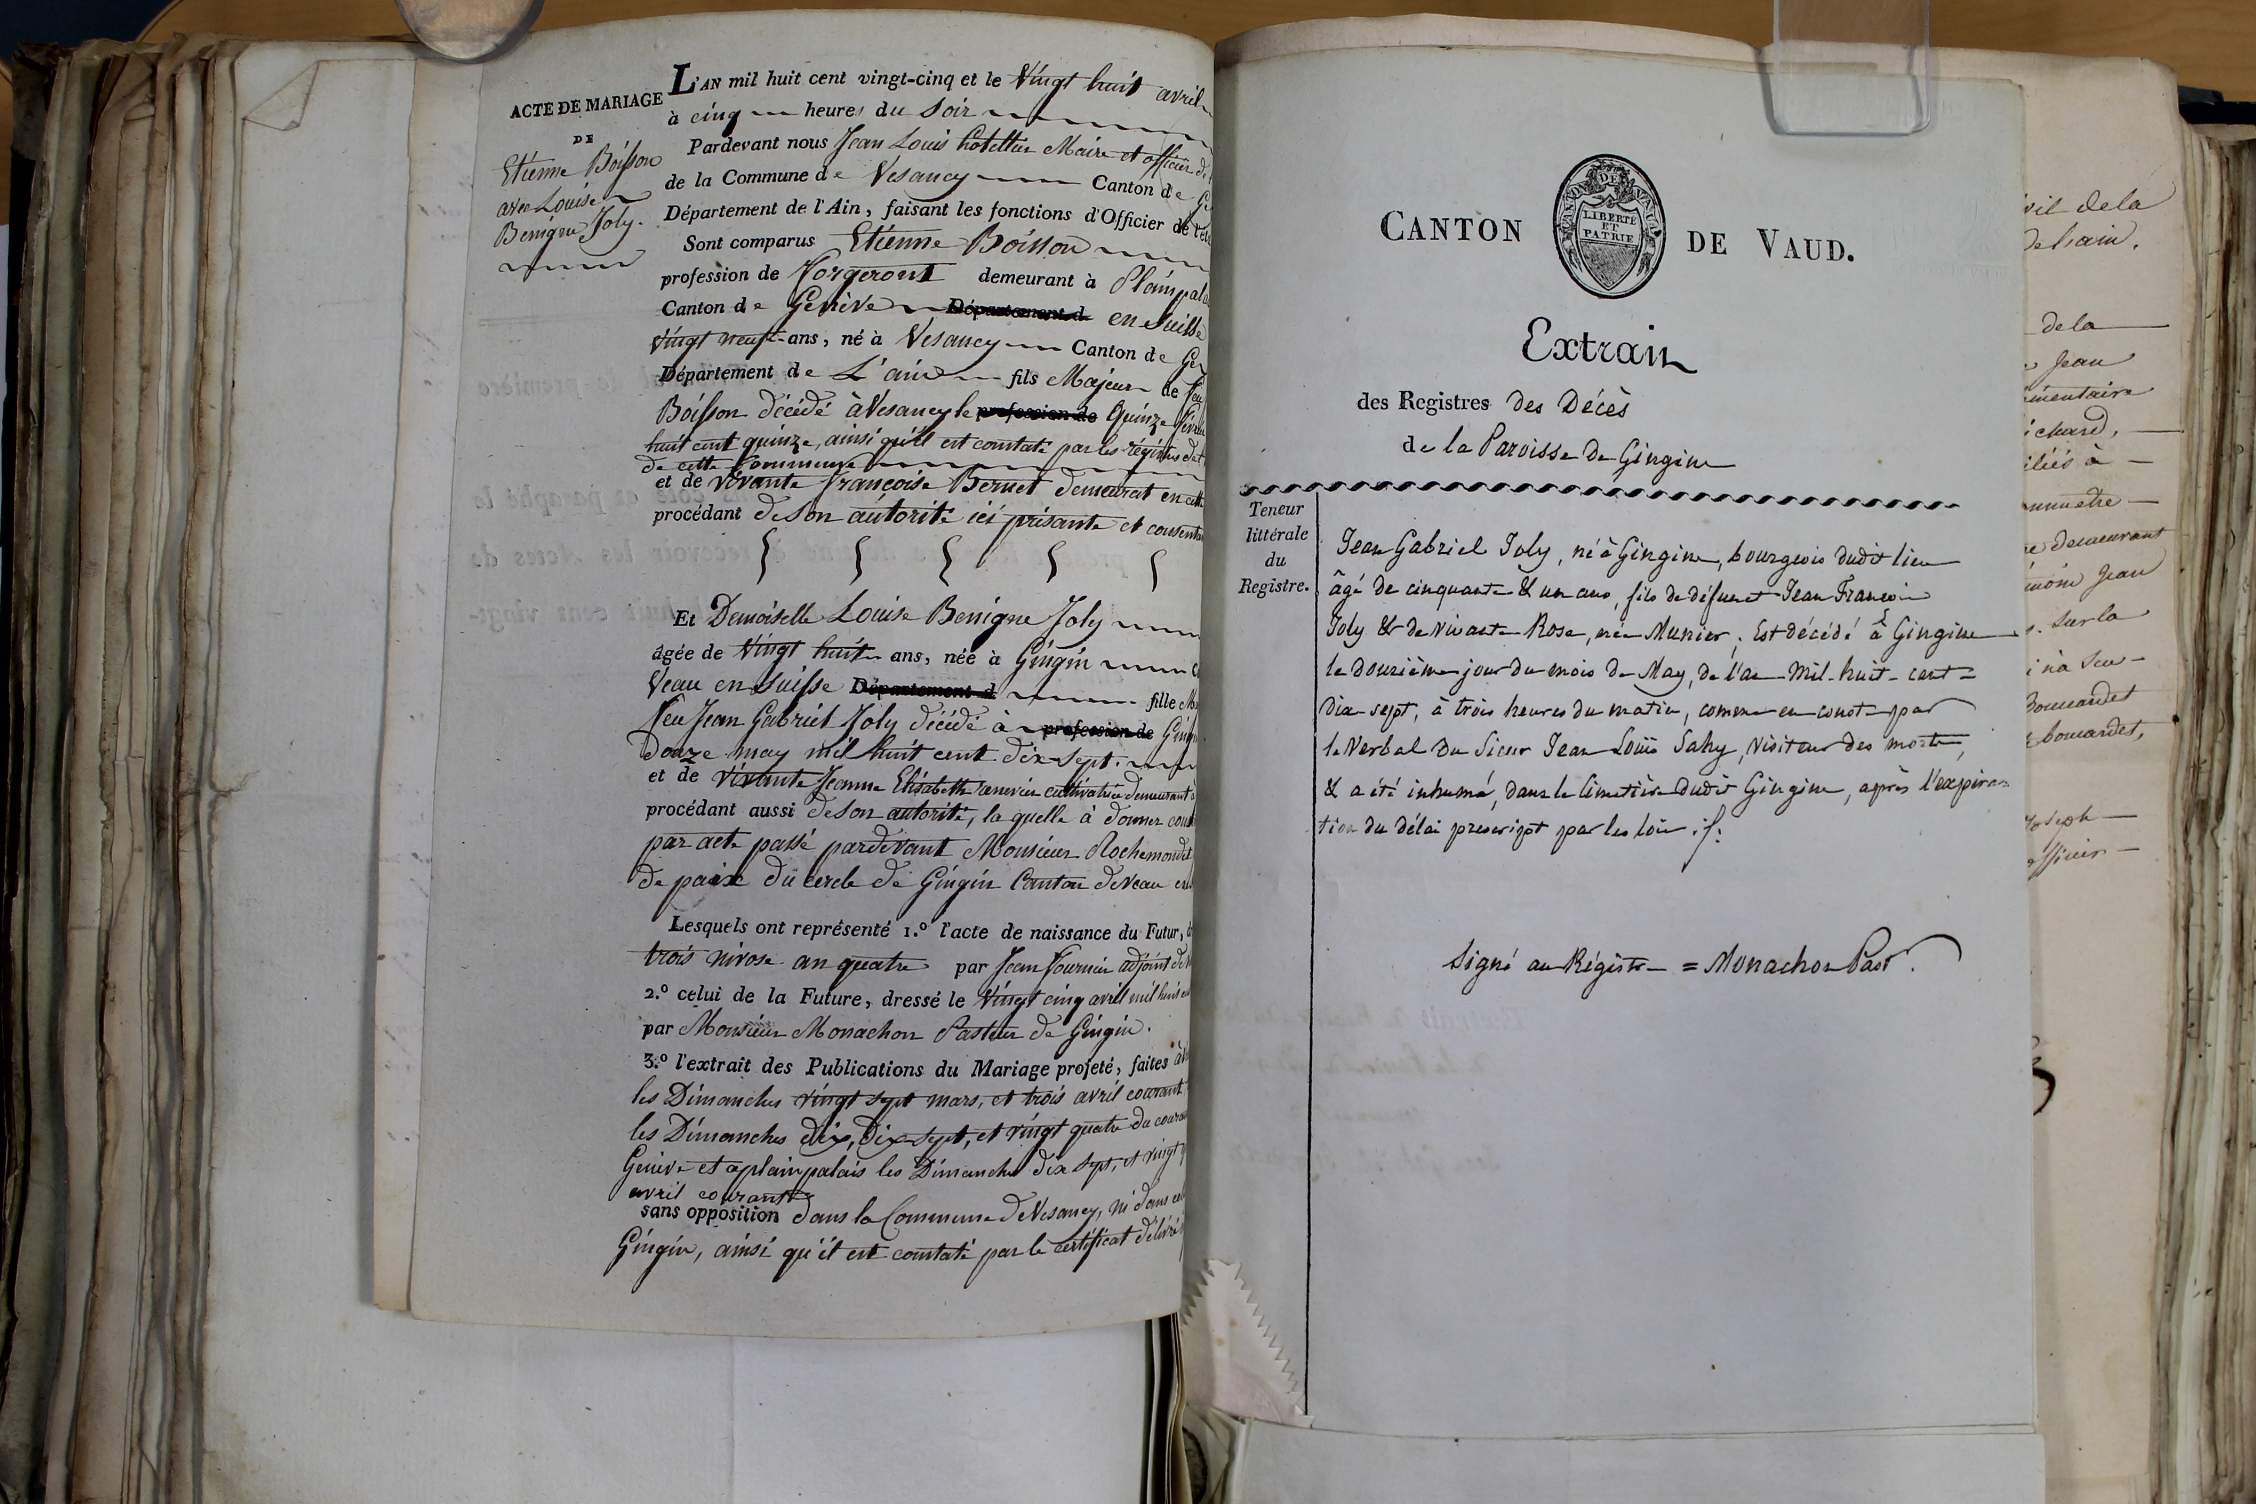 ACTE DE MARIAGE
DE
Etienne Boisson
avec Louise
Benigne Joly.
L'AN mil huit cent vingt-cinq et le Vingt huit avril
à cinq heures du Soir
Pardevant nous Jean Louis Maire et officier de
de la Commune de Vesancy Canton de
Département de l'Ain, faisant les fonctions d'Officier de l'
Sont comparus Etienne Boisson
profession de Forgeront demeurant à Plainpala
Canton de Genève Département d en Suisse
Vingt neuf ans, né à Vesancy Canton de Gex
Département de L'ain fils Majeur de feu
Boisson décédé à Vesancy le profession de Quinze
huit cent quinze, ainsi qu'il est constaté par les régistres de
de cette Commune
et de vivante françoise Bernet demeurat en cette
procédant de son autorité ici présante et consent
Et Demoiselle Louise Benigne Joly
agée de Vingt huit ans, née à Gingin
Veau en Suisse Département d fille
feu Jean Gabriel Joly décédé à profession de
Douze may mil huit cent dix-sept.
et de vivante Jeanne Elisabeth cultivatrice demeurant
procédant aussi de son autorité, la quelle à donner
par acte passé pardevant Monsieur Rochemondet
de paix du cercle de Gingin Canton de Veau en
Lesquels ont représenté 1.º l'acte de naissance du Futur,
trois nivose an quatre par Jean fournier adjoint de
2.º celui de la Future, dressé le Vingt cinq avril mil huit
par Monsieur Monachon Pasteur de Gingin.
3.º l'extrait des Publications du Mariage projeté, faites à
les Dimanches vingt sept mars, et trois avril courant
les Dimanches dix, dix sept, et vingt quatre du
Genève et a plainpalais les Dimanche dix sept, et vingt
avril courants
sans opposition dans la Commune de Vesancy, ni dans
Gingin, ainsi qu'il est constaté par le certificat délivré
CANTON DE VAUD.
CANTON DE VAUD
LIBERTÉ
ET
PATRIE
Extrait
des Registres des Décès
de la Paroisse de Gingins
Teneur
littérale
du
Registre.
Jean Gabriel Joly, né à Gingins, bourgeois dudit lieu
âgé de cinquante & un ans, fils de défunct Jean François
Joly & de vivante Rose, née Munier, Est décédé à Gingins
le douzième jour du mois de May, de l'an Mil-huit-cent=
dix-sept, à trois heures du matin, comme en conste par
le Verbal du Sieur Jean Louïs Sahy, Visiteur des morts,
& a été inhumé, dans le Cimetière dudit Gingins, après l'expira=
tion du délai prescript par les loix.
Signé au Régistre = Monachon Past.
de la
de la
Jean
demeurant
Jean
sur la
Joseph